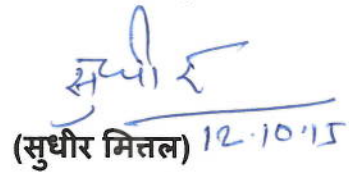 सुधीर
(सुधीर मित्तल) 12.10.15